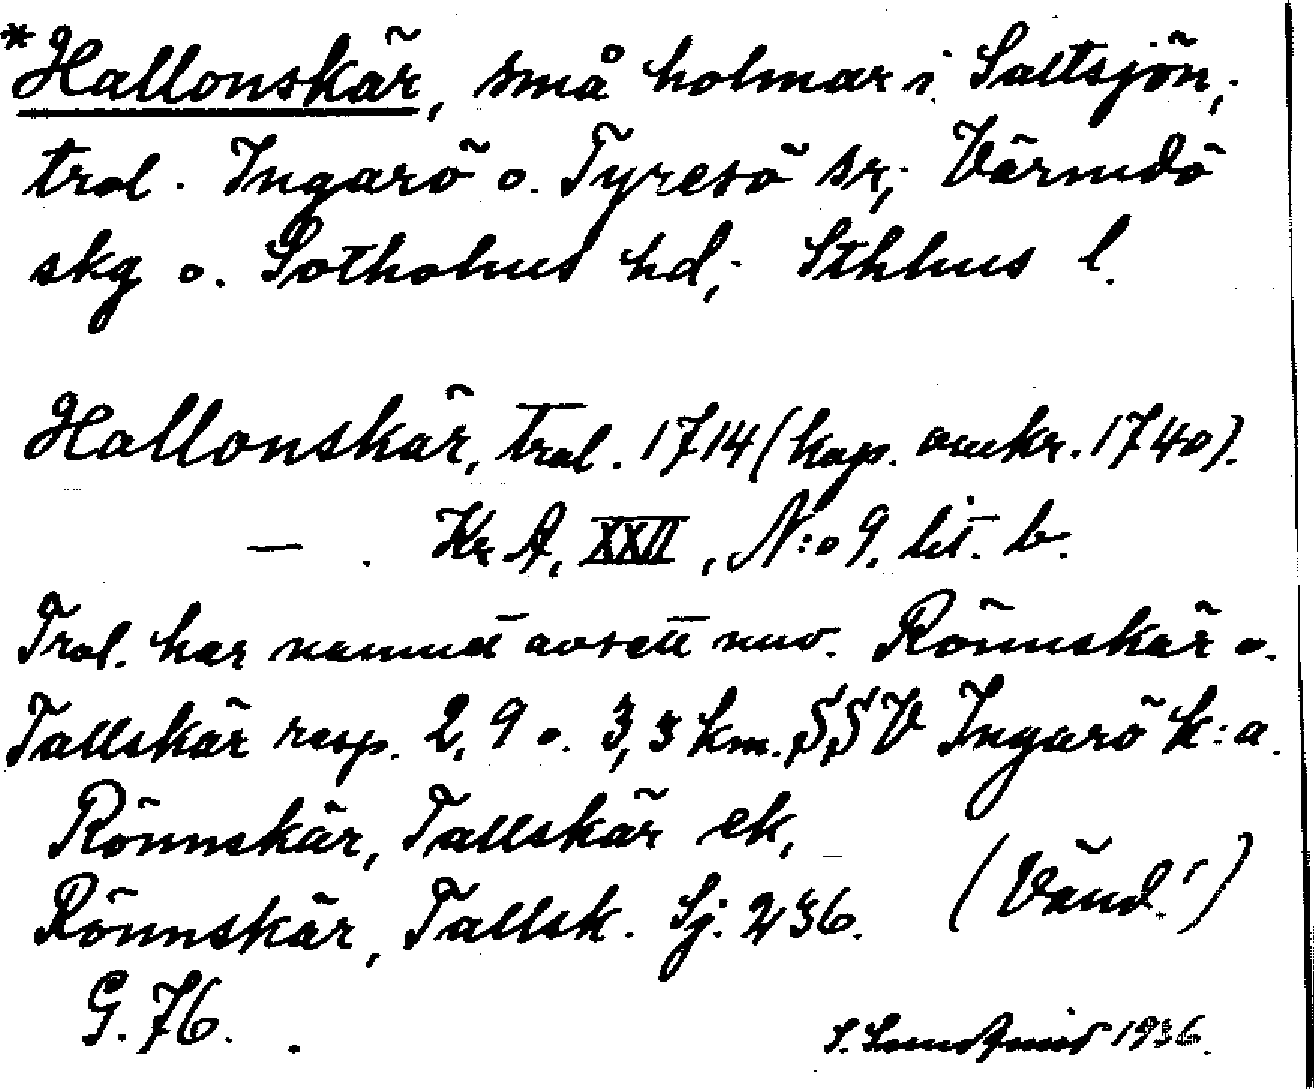 *Hallonskär, små holmar i Saltsjön,
trol. Ingarö o. Tyresö sr, Värmdö
skg o. Sotholms hd, Sthlms l.
Hallonskär, trol. 1714 (kop. omkr. 1740).
— . Kr A, XXII, N:o 9. lit. b.
Trol. har namnet avsett nuv. Rönnskär o.
Tallskär resp. 2,9 o. 3,3 km. SSV Ingarö k:a.
Rönnskär, Tallskär ek,
Rönnskär, Tallsk. Sj. 236. (Vänd!)
G. 76.
S. 1936.